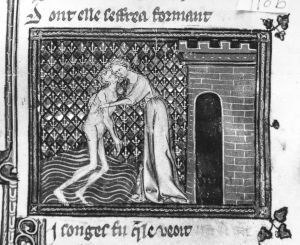 Dont elle seffrea formant
110b
Si songes fu q̃le veoit